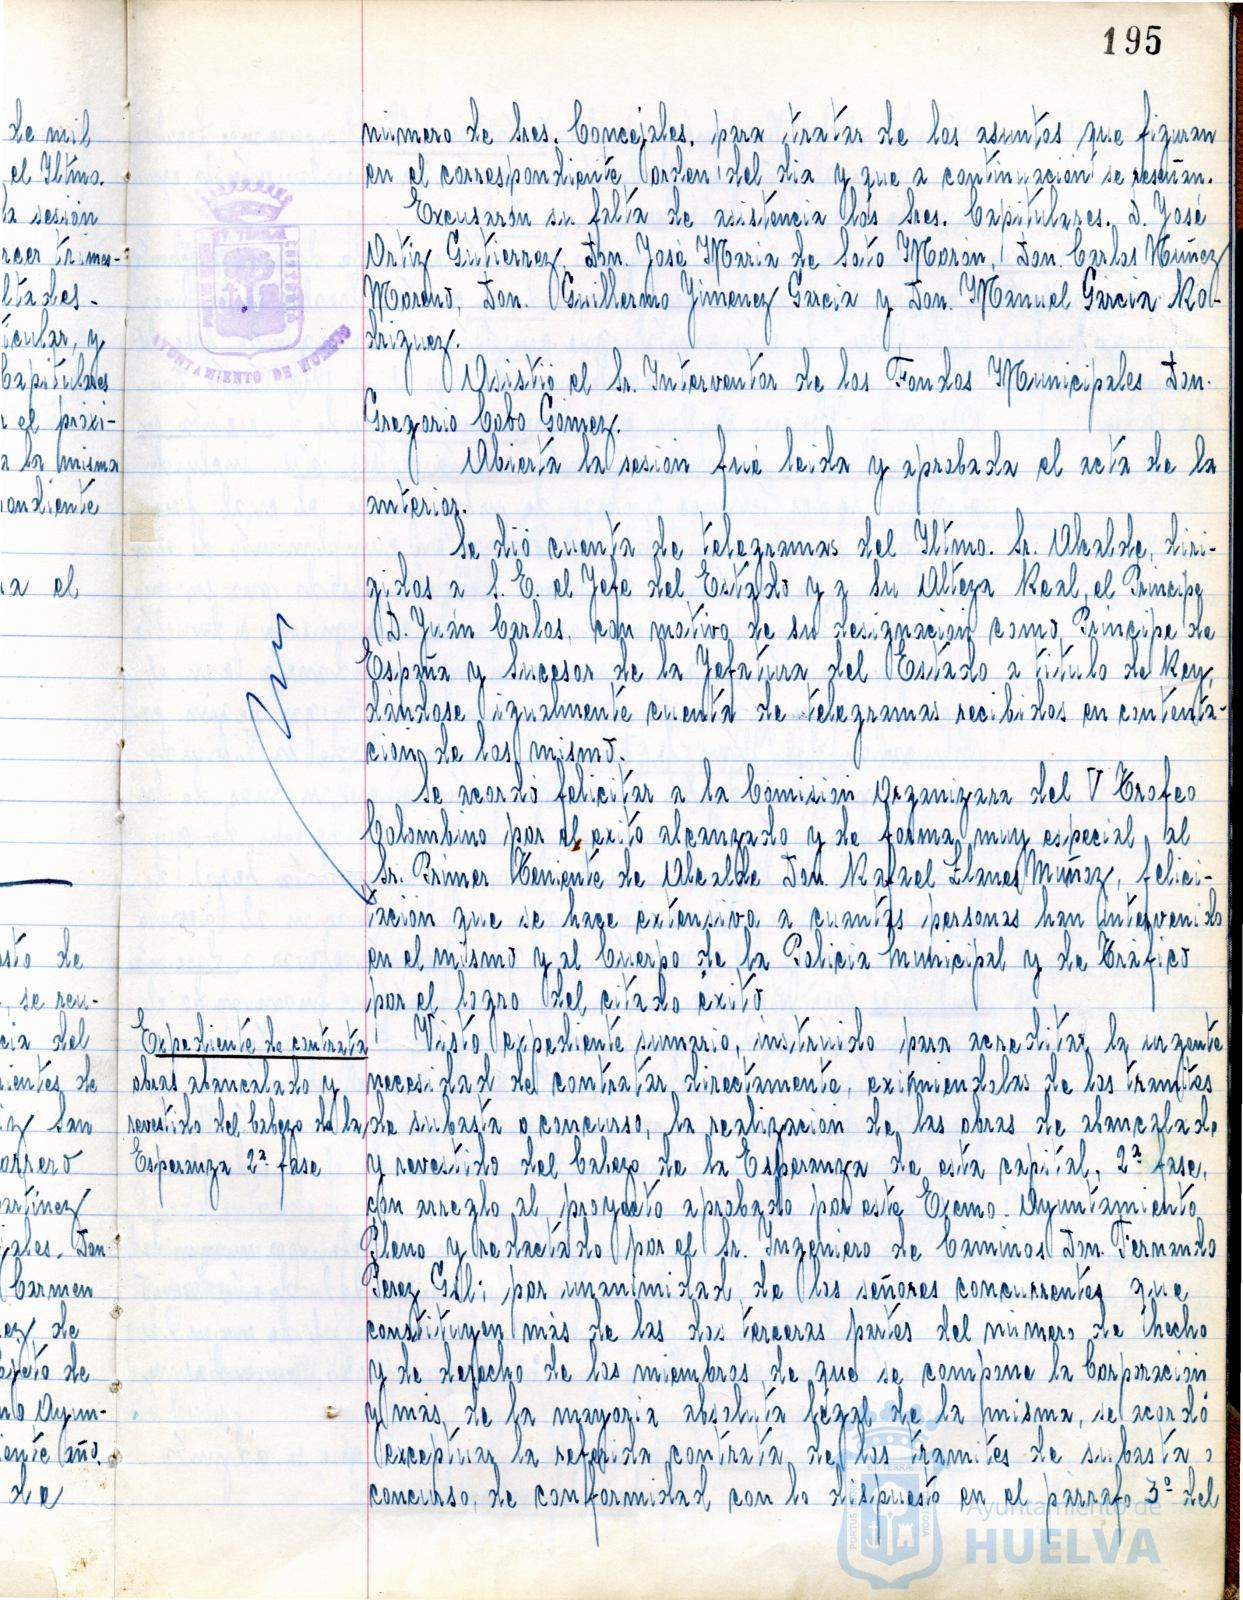 195
de mil
el Iltmo.
la sesión
ltades.
ticular, y
Capitulares
r el próxi-
a la misma
ondiente
ra el
sto de
, se reu-
cia del
rientes de
San
orrero
artínez
ales. Don
Carmen
ez de
de
Ayun-
iente año,
de
AYUNTAMIENTO DE HUELVA
número de Sres. Concejales, para tratar de los asuntos que figuran
en el correspondiente orden del día y que a continuación se reseñan.
Excusarón su falta de asistencia los Sres. Capitulares. D. José
Ortiz Gutierrez, Don. José Maria de Soto Morón, Don. Carlos Muñoz
Moreno, Don. Guillermo Jimenez Garcia y Don. Manuel Garcia Ro-
driguez.
Asistió el Sr. Interventor de los Fondos Municipales Don.
Gregorio Cobo Gómez.
Abierta la sesión fué leida y aprobada el acta de la
anterior.
Se dió cuenta de telegramas del Iltmo. Sr. Alcalde, diri-
gidos a S. E. el Jefe del Estado y a Su Alteza Real, el Principe
D. Juán Carlos, con motivo de su designación como Principe de
España y Sucesor de la Jefatura del Estado a titulo de Rey,
dándose igualmente cuenta de telegramas recibidos en contesta-
ción de los mismo.
Se acordó felicitar a la Comisión Organizara del V Trofeo
Colombino por el exito alcanzado y de forma muy especial al
Sr. Primer Teniente de Alcalde Don. Rafael Llanes Muñoz, felici-
tación que se hace extensiva a cuantas personas han intervenido
en el mismo y al Cuerpo de la Policia Municipal y de Tráfico
por el logro del citado éxito.
Expediente de contrata
obras abancalado y
revestido del Cabezo de la
Esperanza 2ª fase
Visto expediente sumario, instruido para acreditar la urgente
necesidad de contratar directamente, eximiendolas de los tramites
de subasta o concurso, la realización de las obras de abancalado
y revestido del Cabezo de la Esperanza de esta capital, 2ª fase,
con arreglo al proyecto aprobado por este Excmo. Ayuntamiento
Pleno y redactado por el Sr. Ingeniero de Caminos Don. Fernando
Perez Gil; por unanimidad de los señores concurrentes que
constituyen más de las dos terceras partes del número de hecho
y de derecho de los miembros de que se compone la Corporación
y más de la mayoria absoluta legal de la misma, se acordó
exceptuar la referida contrata de los tramites de subasta o
concurso, de conformidad con lo dispuesto en el parrafo 3º del
Ayuntamiento de
HUELVA